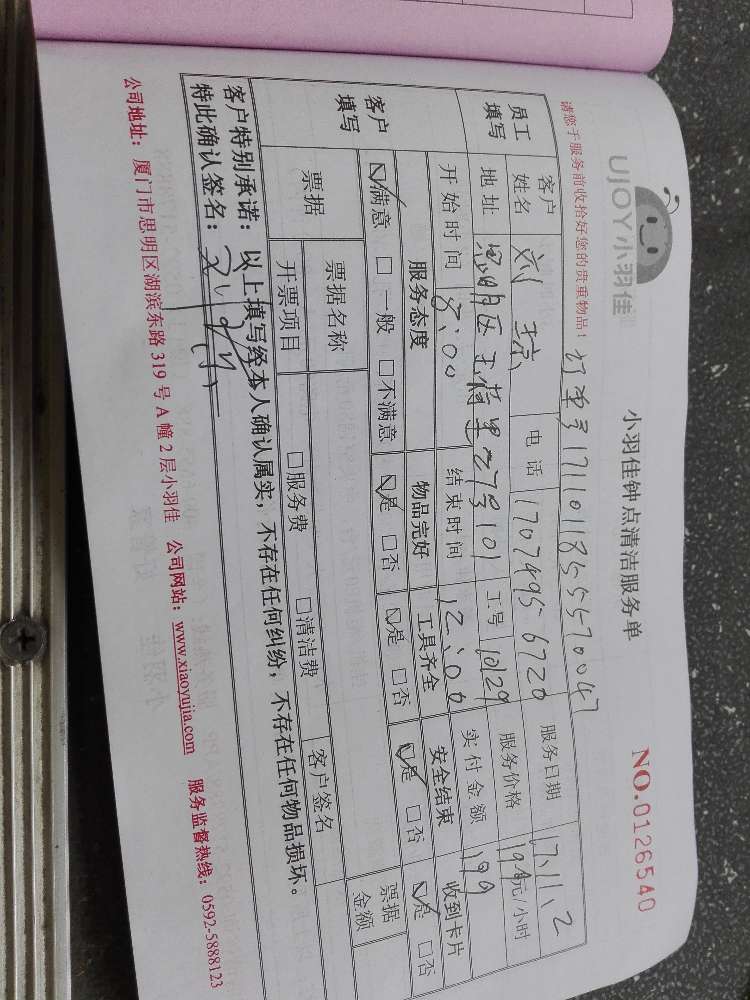 UJOY小羽佳
小羽佳钟点清洁服务单
NO.0126540
请您于服务前收拾好您的贵重物品！ 订单号17110118555570047
员工填写 客户姓名 刘 电话 17074956720 服务日期 17.11.2
地址 思明区 27号101 工号 10129 服务价格 元/小时
开始时间 8:00 结束时间 12:00 实付金额 199
客户填写 服务态度 物品完好 工具齐全 安全结束 收到卡片
☑满意 □一般 □不满意 ☑是 □否 ☑是 □否 ☑是 □否 ☑是 □否
票据 票据名称 客户签名 票据金额
开票项目 □服务费 □清洁费
客户特别承诺：以上填写经本人确认属实，不存在任何纠纷，不存在任何物品损坏。
特此确认签名：
公司地址：厦门市思明区湖滨东路 319 号 A 幢 2 层小羽佳 公司网站：www.xiaoyujia.com 服务监督热线：0592-5888123